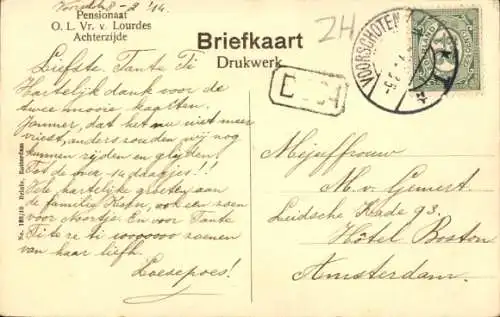 Voorsch. 8-2 '14.
Pensionaat
O. L. Vr. v. Lourdes
Achterzijde
Briefkaart
Drukwerk
Liefste Tante Ti
Hartelijk dank voor de
twee mooie kaarten.
Jammer, dat het nu niet meer
vriest, anders zouden wij nog
kunnen rijden en glijden.
Tot de over 14 daagjes!!
Vele hartelijke groeten aan
de familie Kiefer, ook een zoen
voor Noortje. En voor Tante
Titere ti 10000000 zoenen
van haar liefh.
Loesepoes!
Nr. 182/10 Rotterdam
ZH
VOORSCHOTEN
Mejuffrouw
M. v. Gemert.
Leidsche Kade 93.
Hôtel Boston
Amsterdam.